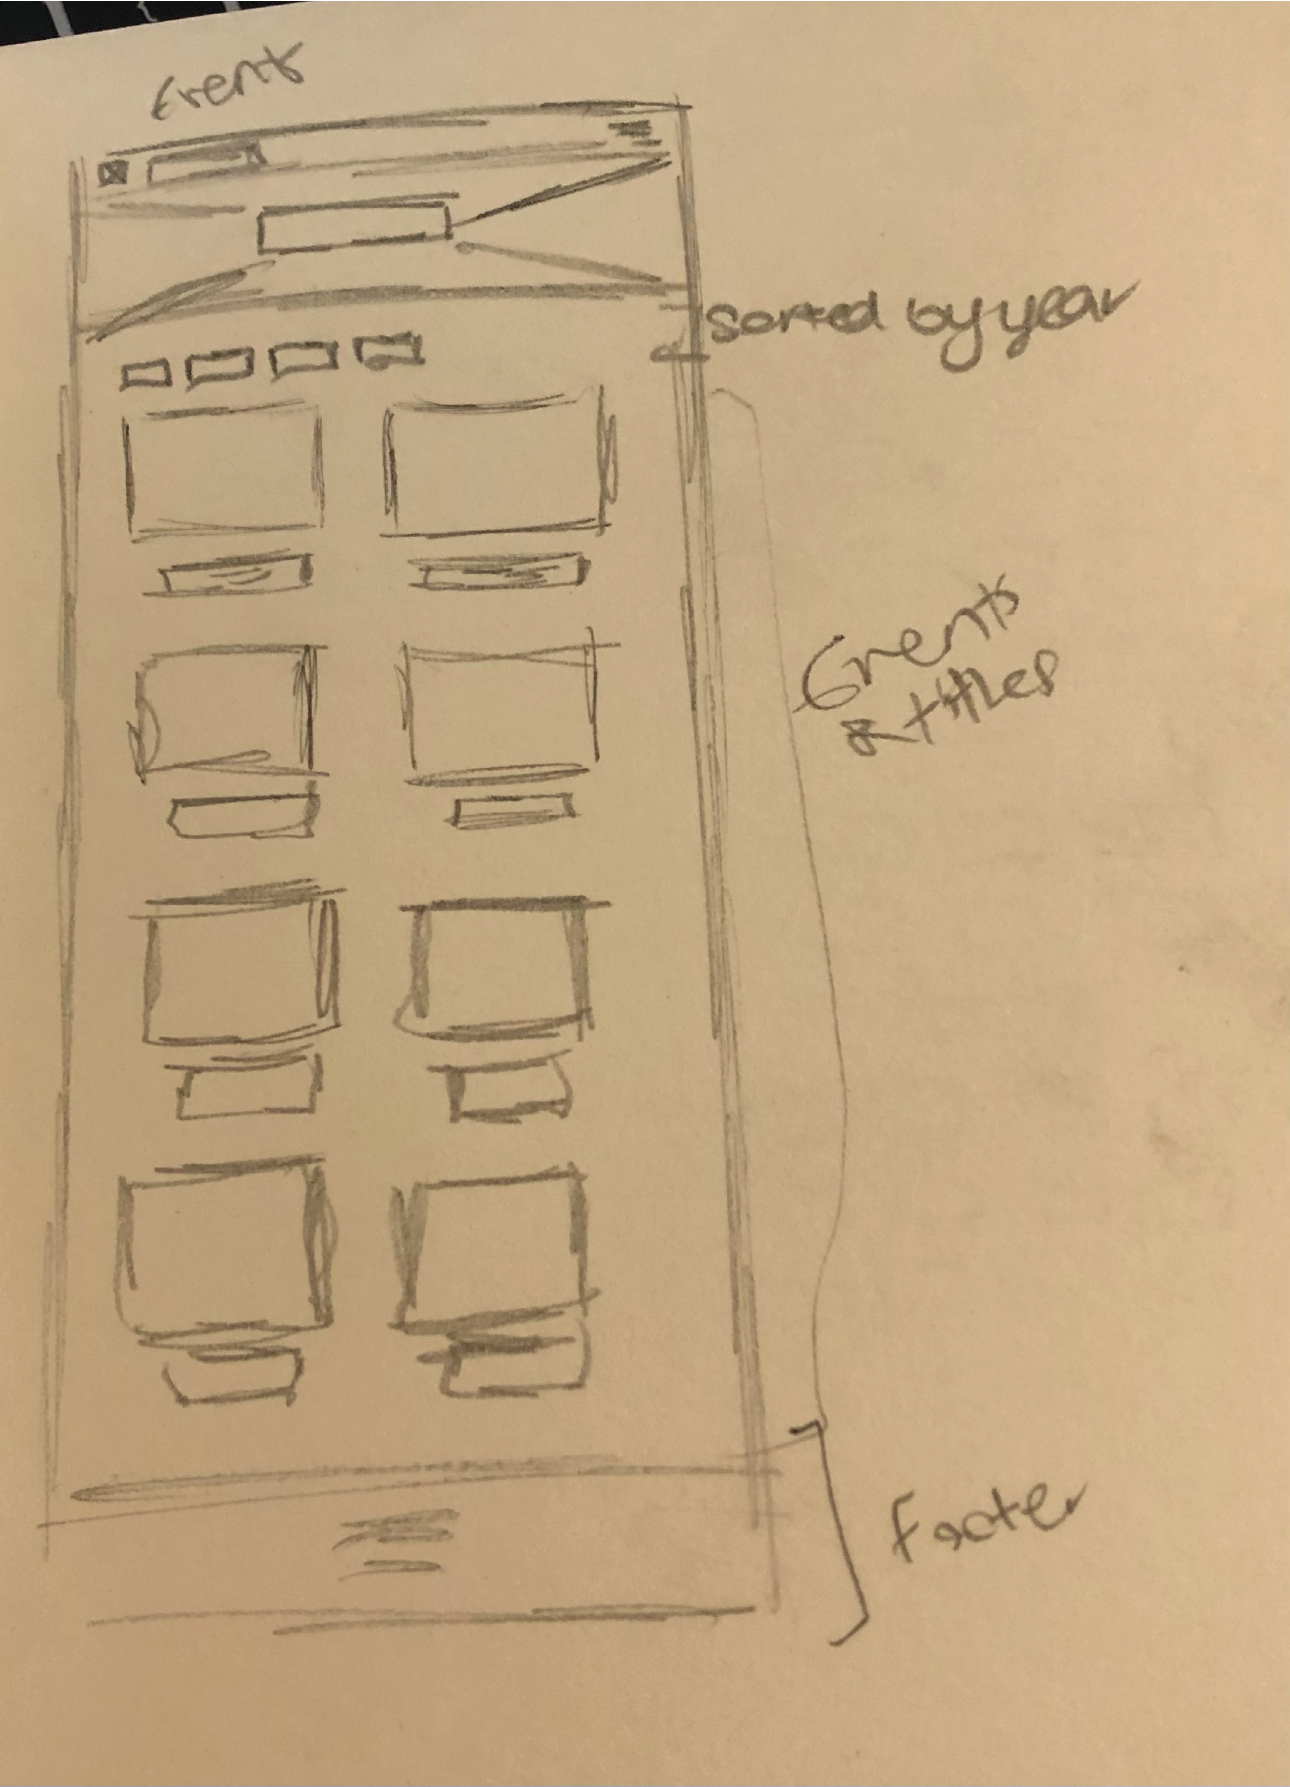 Events
Sorted by year
Events
& titles
Footer